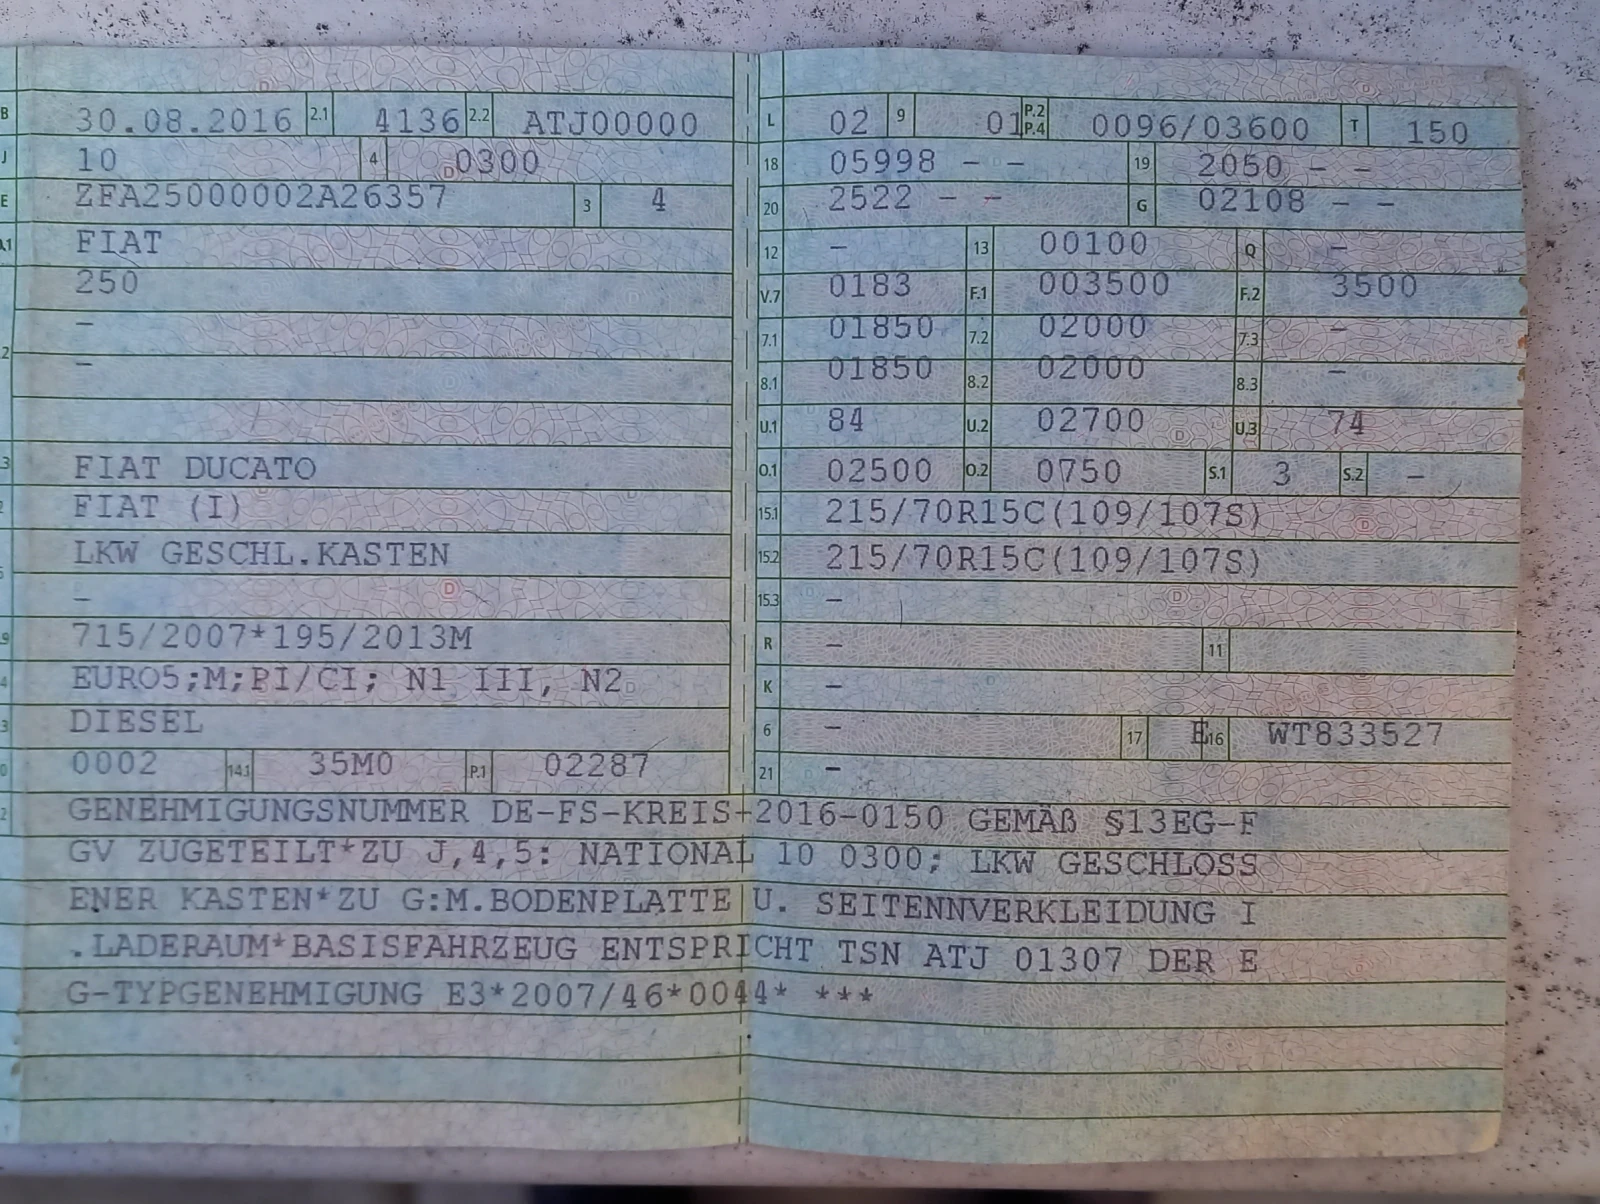 B 30.08.2016 2.1 4136 2.2 ATJ00000
J 10 4 0300
E ZFA25000002A26357 3 4
FIAT
250
–
2 –
3 FIAT DUCATO
FIAT (I)
LKW GESCHL.KASTEN
–
9 715/2007*195/2013M
4 EURO5;M;PI/CI; N1 III, N2
3 DIESEL
0002 14.1 35M0 P.1 02287
L 02 9 01 P.2 P.4 0096/03600 T 150
18 05998 – – 19 2050 – –
20 2522 – – G 02108 – –
12 – 13 00100 Q –
V.7 0183 F.1 003500 F.2 3500
7.1 01850 7.2 02000 7.3 –
8.1 01850 8.2 02000 8.3 –
U.1 84 U.2 02700 U.3 74
O.1 02500 O.2 0750 S.1 3 S.2 –
15.1 215/70R15C(109/107S)
15.2 215/70R15C(109/107S)
15.3 –
R – 11
K –
6 – 17 E 16 WT833527
21 –
GENEHMIGUNGSNUMMER DE-FS-KREIS-2016-0150 GEMÄß §13EG-F
GV ZUGETEILT*ZU J,4,5: NATIONAL 10 0300; LKW GESCHLOSS
ENER KASTEN*ZU G:M.BODENPLATTE U. SEITENNVERKLEIDUNG I
.LADERAUM*BASISFAHRZEUG ENTSPRICHT TSN ATJ 01307 DER E
G-TYPGENEHMIGUNG E3*2007/46*0044* ***